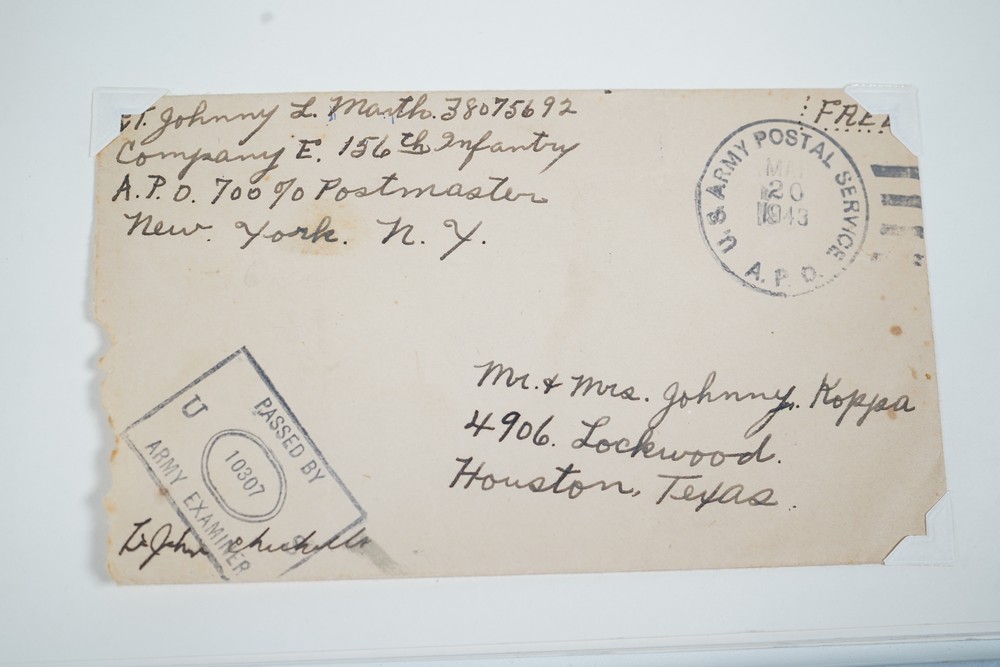 Johnny L. Marth. 38075692
Company E. 156th Infantry
A.P.O. 700 % Postmaster
New. York. N. Y.
FREE
U.S. ARMY POSTAL SERVICE
MAR
20
1943
A.P.O.
Mr. & Mrs. Johnny. Koppa
4906. Lockwood.
Houston, Texas.
PASSED BY
U S
10307
ARMY EXAMINER
Lt John